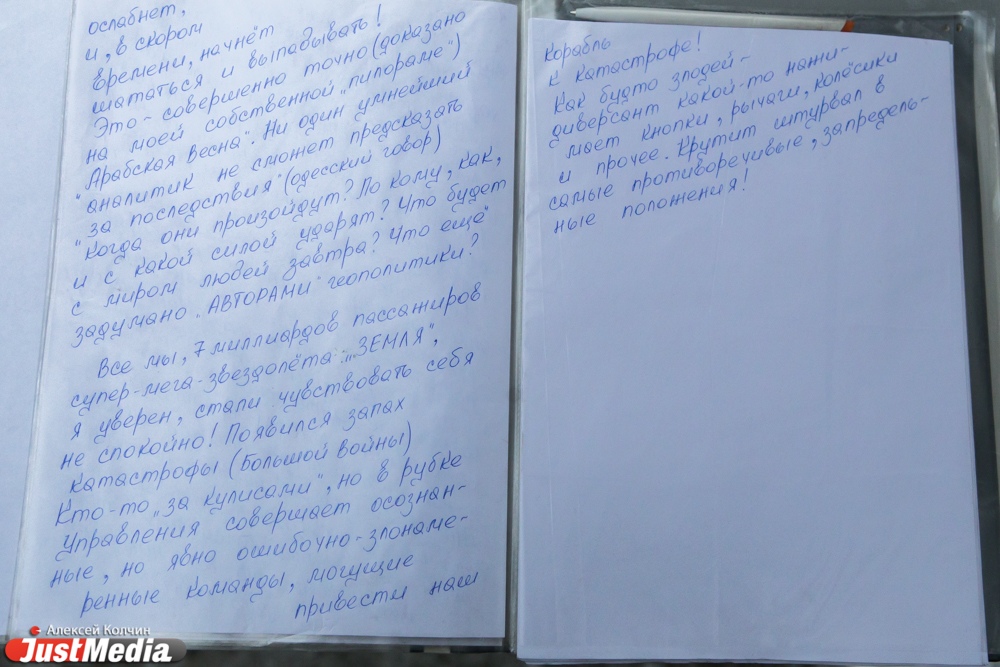 ослабнет,
и, в скором
времени, начнёт
шататься и выпадывать!
Это - совершенно точно (доказано
на моей собственной „пилораме")
"Арабская весна". Ни один умнейший
аналитик не сможет предсказать
"за последствия" (одесский говор)
"Когда они произойдут? По кому, как,
и с какой силой ударят? Что будет
с миром людей завтра? Что ещё"
задумано „АВТОРАМИ" геополитики?
Все мы, 7 миллиардов пассажиров
супер-мега-звездолёта: „ЗЕМЛЯ",
я уверен, стали чувствовать себя
не спокойно! Появился запах
катастрофы (Большой войны)
Кто-то „за кулисами", но в рубке
управления совершает осознан-
ные, но явно ошибочно-злонаме-
ренные команды, могущие
привести наш
корабль
к катастрофе!
Как будто злодей-
диверсант какой-то нажи-
мает кнопки, рычаги, колёсики
и прочее. Крутит штурвал в
самые противоречивые, запредель-
ные положения!
Алексей Колчин
JustMedia